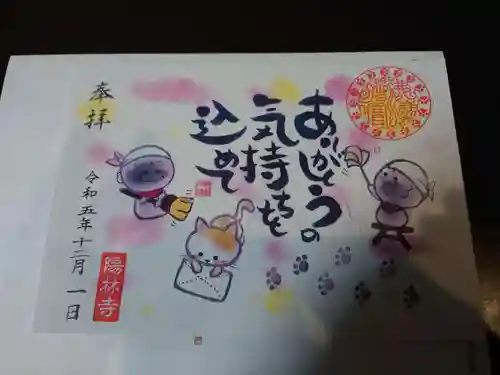 ありがとうの
気持ちを
込めて
奉拝
令和五年十二月一日
陽林寺